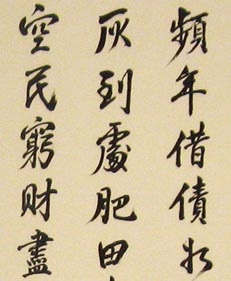 頻年借債
灰到處肥田
空民窮財盡